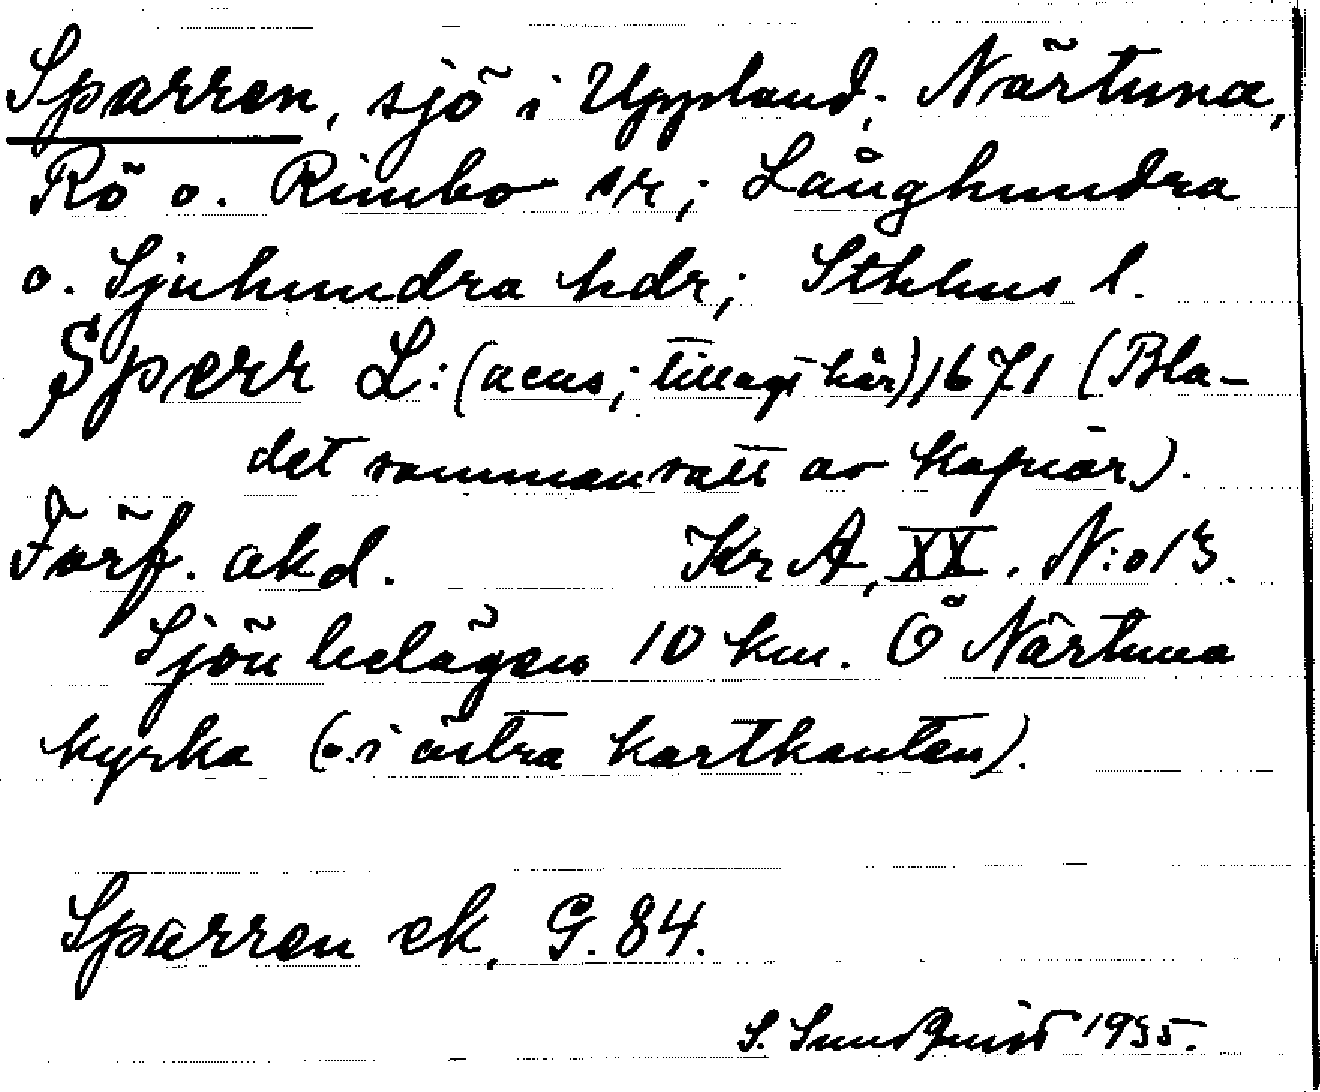 Sparren, sjö i Uppland; Närtuna,
Rö o. Rimbo snr; Långhundra
o. Sjuhundra hdr; Sthlms l.
Sperr L: (acus; tillagt här) 1671 (Bla-
det sammansatt av kopior).
Förf. okd. Kr A, XX. N:o 13.
Sjön belägen 10 km. Ö Närtuna
kyrka (o. i östra kartkanten).
Sparren ek, G. 84.
S. Sundquist 1935.